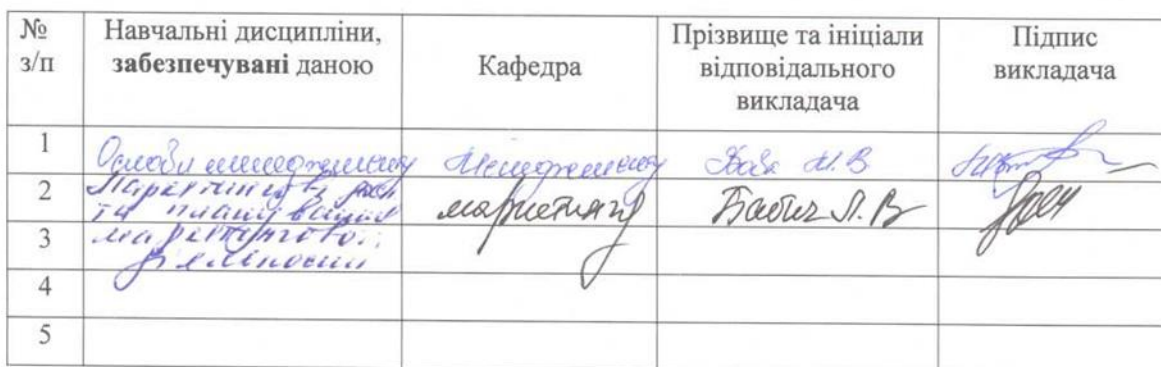 № з/п
Навчальні дисципліни, забезпечувані даною
Кафедра
Прізвище та ініціали відповідального викладача
Підпис викладача
1 Основи менеджменту Менеджменту М.В
2 Маркетингові та планування маркетингу Бабич Л.В
3 маркетингової діяльності
4
5